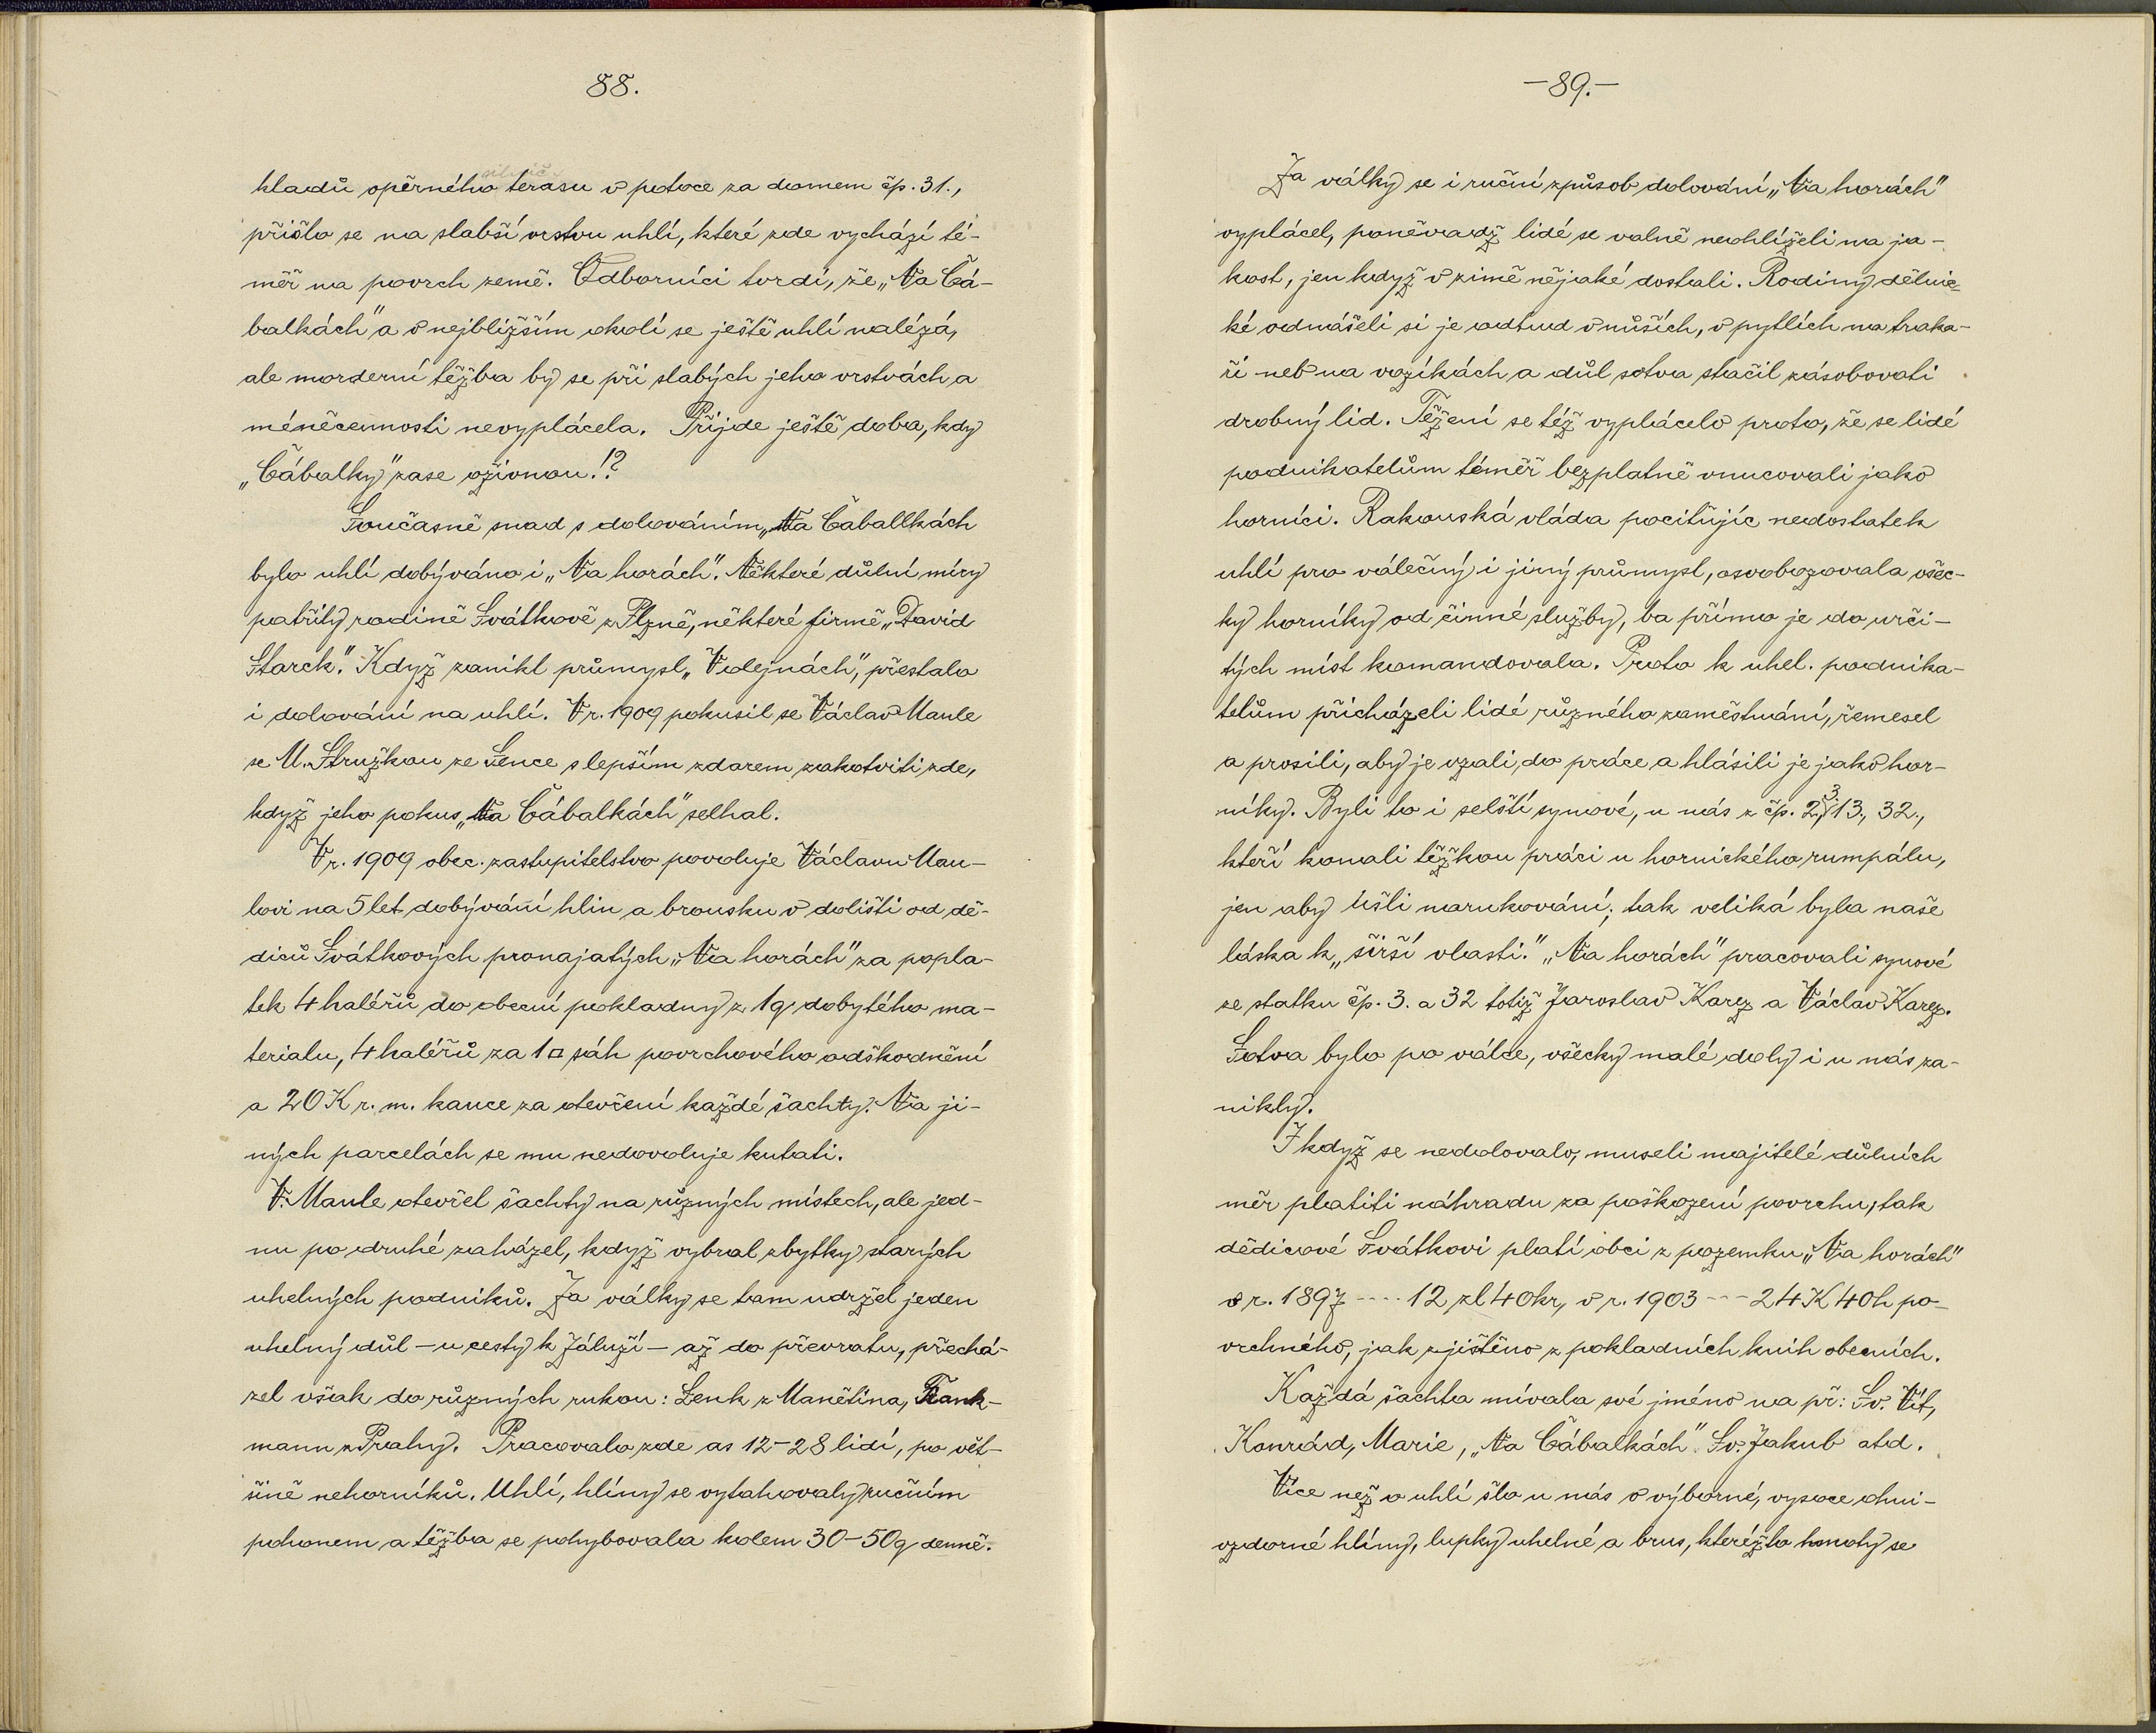 88.
kladů opěrného terasu v potoce za domem čp. 31.,
přišlo se na slabší vrstvu uhlí, které zde vychází té-
měř na povrch země. Odborníci tvrdí, že „Na Čá-
balkách" a v nejbližším okolí se ještě uhlí nalézá,
ale morderní těžba by se při slabých jeho vrstvách a
méněcennosti nevyplácela. Přijde ještě doba, kdy
„Čábalky" zase ožívnou!?
Současně snad s dolováním „Na Čaballkách
bylo uhlí dobýváno i „Na horách". Některé důlní míry
patřily rodině Svátkově z Plzně, některé firmě „David
Starck." Když zanikl průmysl „V olejnách", přestalo
i dolování na uhlí. V r. 1909 pokusil se Václav Maule
se M. Stružkou ze Žence s lepším zdarem zakotviti zde,
když jeho pokus „Na Čábalkách" selhal.
V r. 1909 obec. zastupitelstvo povoluje Václavu Mau-
lovi na 5 let dobývání hlin a brousku v dolišti od dě-
diců Svátkových pronajatých „Na horách" za popla-
tek 4 haléřů do obecní pokladny z 1q dobytého ma-
terialu, 4 haléřů za 1 □ sáh povrchového odškodnění
a 20 K r. m. kauce za otevření každé šachty. Na ji-
ných parcelách se mu nedovoluje kutati.
V. Maule otevřel šachty na různých místech, ale jed-
nu po druhé zaházel, když vybral zbytky starých
uhelných podniků. Za války se tam udržel jeden
uhelný důl – u cesty k Záluží – až do převratu, přechá-
zel však do různých rukou: Lenk z Manětína, Frank-
mann z Prahy. Pracovalo zde as 12–28 lidí, po vět-
šině nehorníků. Uhlí, hlíny se vytahovaly ručním
pohonem a těžba se pohybovala kolem 30–50q denně.
–89.–
Za války se i ruční způsob dolování „Na horách"
vyplácel, poněvadž lidé se valně neohlíželi na ja-
kost, jen když v zimě nějaké dostali. Rodiny dělnic-
ké odnášeli si je odtud v nůších, v pytlích na traka-
ři neb na vozíkách a důl sotva stačil zásobovati
drobný lid. Těžení se též vyplácelo proto, že se lidé
podnikatelům téměř bezplatně vnucovali jako
horníci. Rakouská vláda pociťujíc nedostatek
uhlí pro válečný i jiný průmysl, osvobozovala všec-
ky horníky od činné služby, ba přímo je do urči-
tých míst komandovala. Proto k uhel. podnika-
telům přicházeli lidé různého zaměstnání, řemesel
a prosili, aby je vzali do práce a hlásili je jako hor-
níky. Byli to i selští synové, u nás z čp. 2, 3, 13., 32.,
kteří konali těžkou práci u hornického rumpálu,
jen aby ušli narukování; tak veliká byla naše
láska k „širší vlasti." „Na horách" pracovali synové
ze statku čp. 3. a 32 totiž Jaroslav Karez a Václav Karez.
Sotva bylo po válce, všecky malé doly i u nás za-
nikly.
I když se nedolovalo, museli majitelé důlních
měr platiti náhradu za poškození povrchu, tak
dědicové Svátkovi platí obci z pozemku „Na horách"
v r. 1897 ---- 12 zl 40kr, v r. 1903 --- 24 K 40h po-
vrchného, jak zjištěno z pokladních knih obecních.
Každá šachta mívala své jméno na př: Sv. Vít,
Konrád, Marie, „Na Čábalkách" Sv. Jakub atd.
Více než o uhlí šlo u nás o výborné, vysoce ohni-
vzdorné hlíny, lupky uhelné a brus, kterážto hmoty se